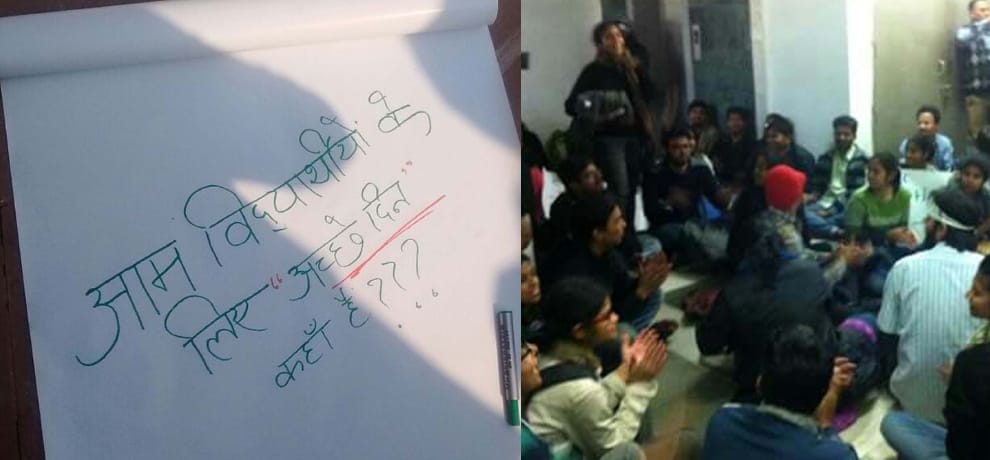 आम विद्यार्थीयों के
लिए "अच्छे दिन"
कहाँ है ????